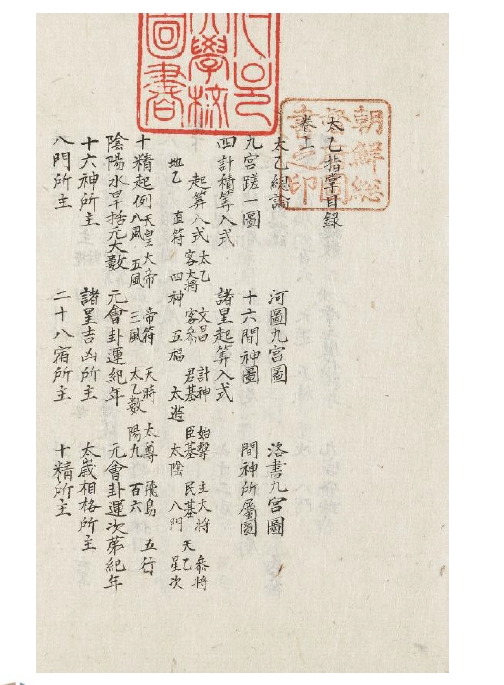 大學校
圖書
朝鮮總
督府圖
書之印
太乙指掌目錄
卷上
太乙總論 河圖九宮圖 洛書九宮圖
九宮蹉一圖 十六間神圖 間神所屬圖
四計積筭入式 諸星起筭入式
起筭入式 太乙 文昌 計神 始擊 主大將 參將
客大將 客參 君基 臣基 民基 天乙
地乙 直符 四神 五福 太遊 太陰 八門 星次
十精起例 天皇大帝 帝符 天時 太尊 飛鳥 五行
八風 五風 三風 太乙數 陽九 百六
陰陽水旱括元大數 元會卦運紀年 元會卦運次第紀年
十六神所主 諸星吉凶所主 太歲相格所主
八門所主 二十八宿所主 十精所主